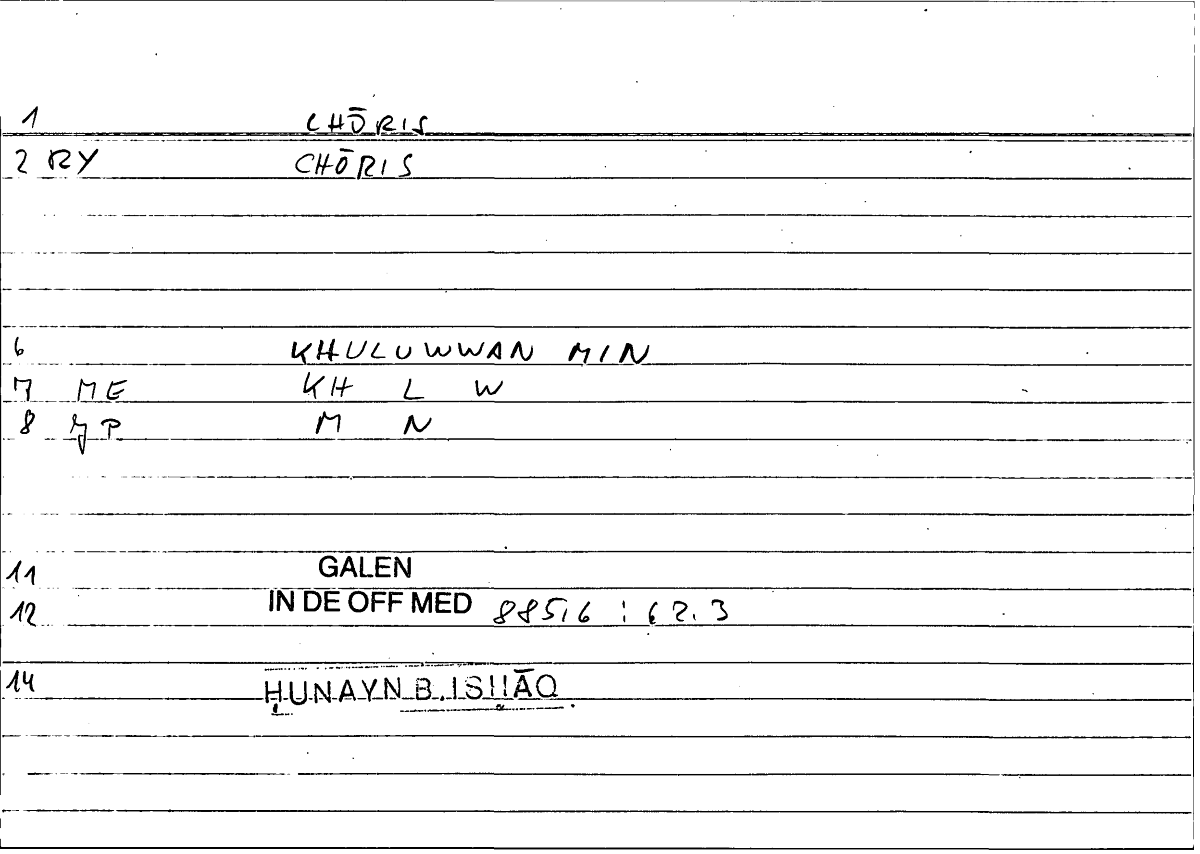 1 CHŌRIS
2 RY CHŌRIS
6 KHULUWWAN MIN
7 ME KH L W
8 JP M N
11 GALEN
12 IN DE OFF MED 885,6 : 62.3
14 ḤUNAYN B. ISḤĀQ